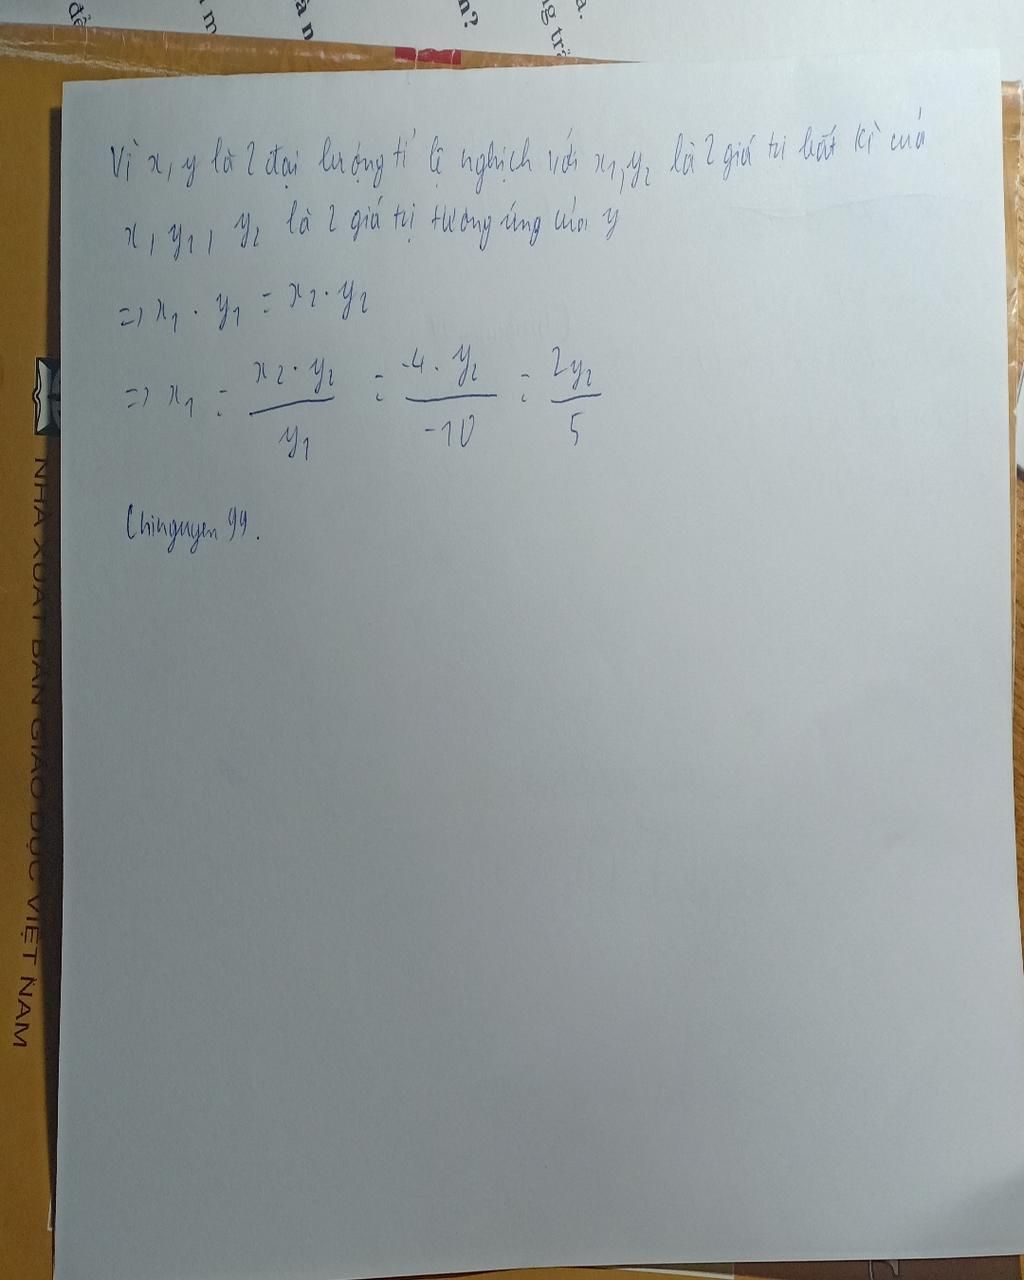 đề
m
ần n
n?
ng trắ
a.
Vì x, y là 2 đại lượng tỉ lệ nghịch với x₁, y₂ là 2 giá trị bất kì của
x, y₁, y₂ là 2 giá trị tương ứng của y
=> x₁ . y₁ = x₂ . y₂
=> x₁ = x₂ . y₂ / y₁ = -4 . y₂ / -10 = 2y₂ / 5
Chinguyen 99.
NHÀ XUẤT BẢN GIÁO DỤC VIỆT NAM